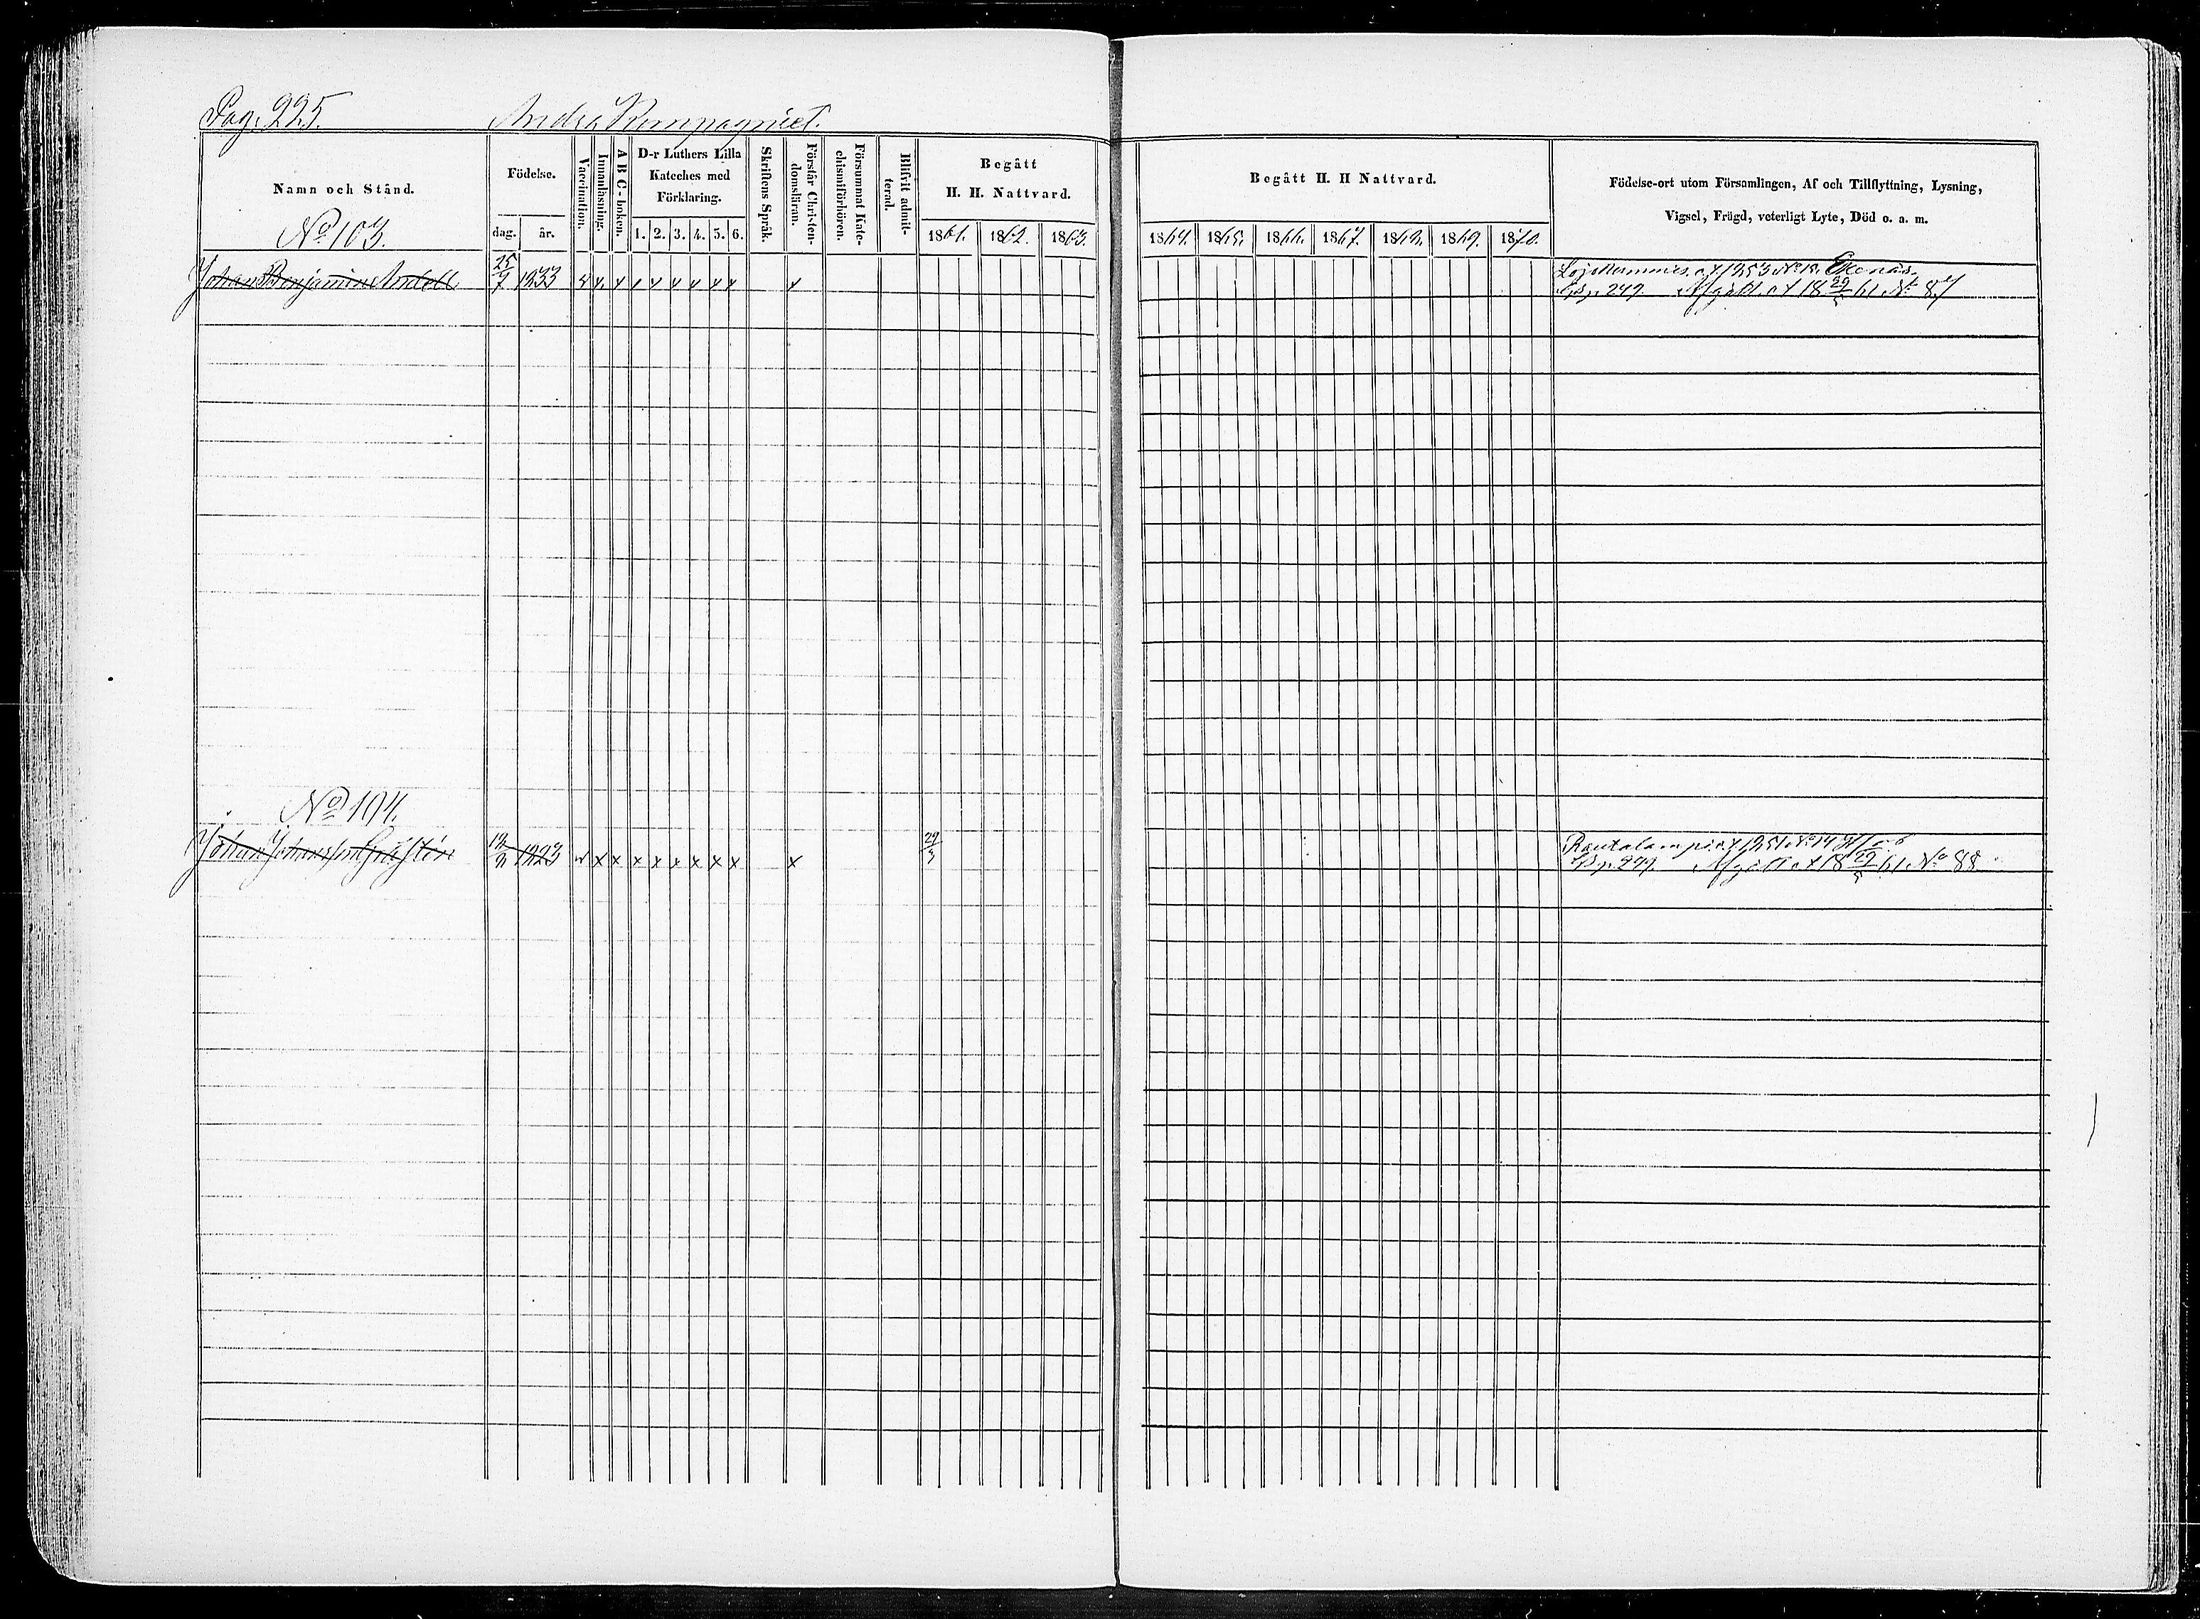 Pag. 225. Andra Kompagniet.
Namn och Stånd.
Födelse.
dag. år.
Vaccination.
Innanläsning.
A B C-boken.
D-r Luthers Lilla
Kateches med
Förklaring.
1. 2. 3. 4. 5. 6.
Skriftens Språk.
Förstår Christen-
domsläran.
Försummat Kate-
chismiförhören.
Blifvit admit-
terad.
Begått
H. H. Nattvard.
1861. 1862. 1863.
Begått H. H Nattvard.
1864. 1865. 1866. 1867. 1868. 1869. 1870.
Födelse-ort utom Församlingen, Af och Tillflyttning, Lysning,
Vigsel, Frägd, veterligt Lyte, Död o. a. m.
No 103.
Johan Benjamin Andell 25/7 1833 v x x x x x x x x x
Lojo Ekenäs
p. 249. Afgått 18 29/5 61 No 87
No 104.
Johan Johansson 1823 v x x x x x x x x x
Rautalampi 1851 No 14
p. 249. Afgått 18 29/5 61 No 88